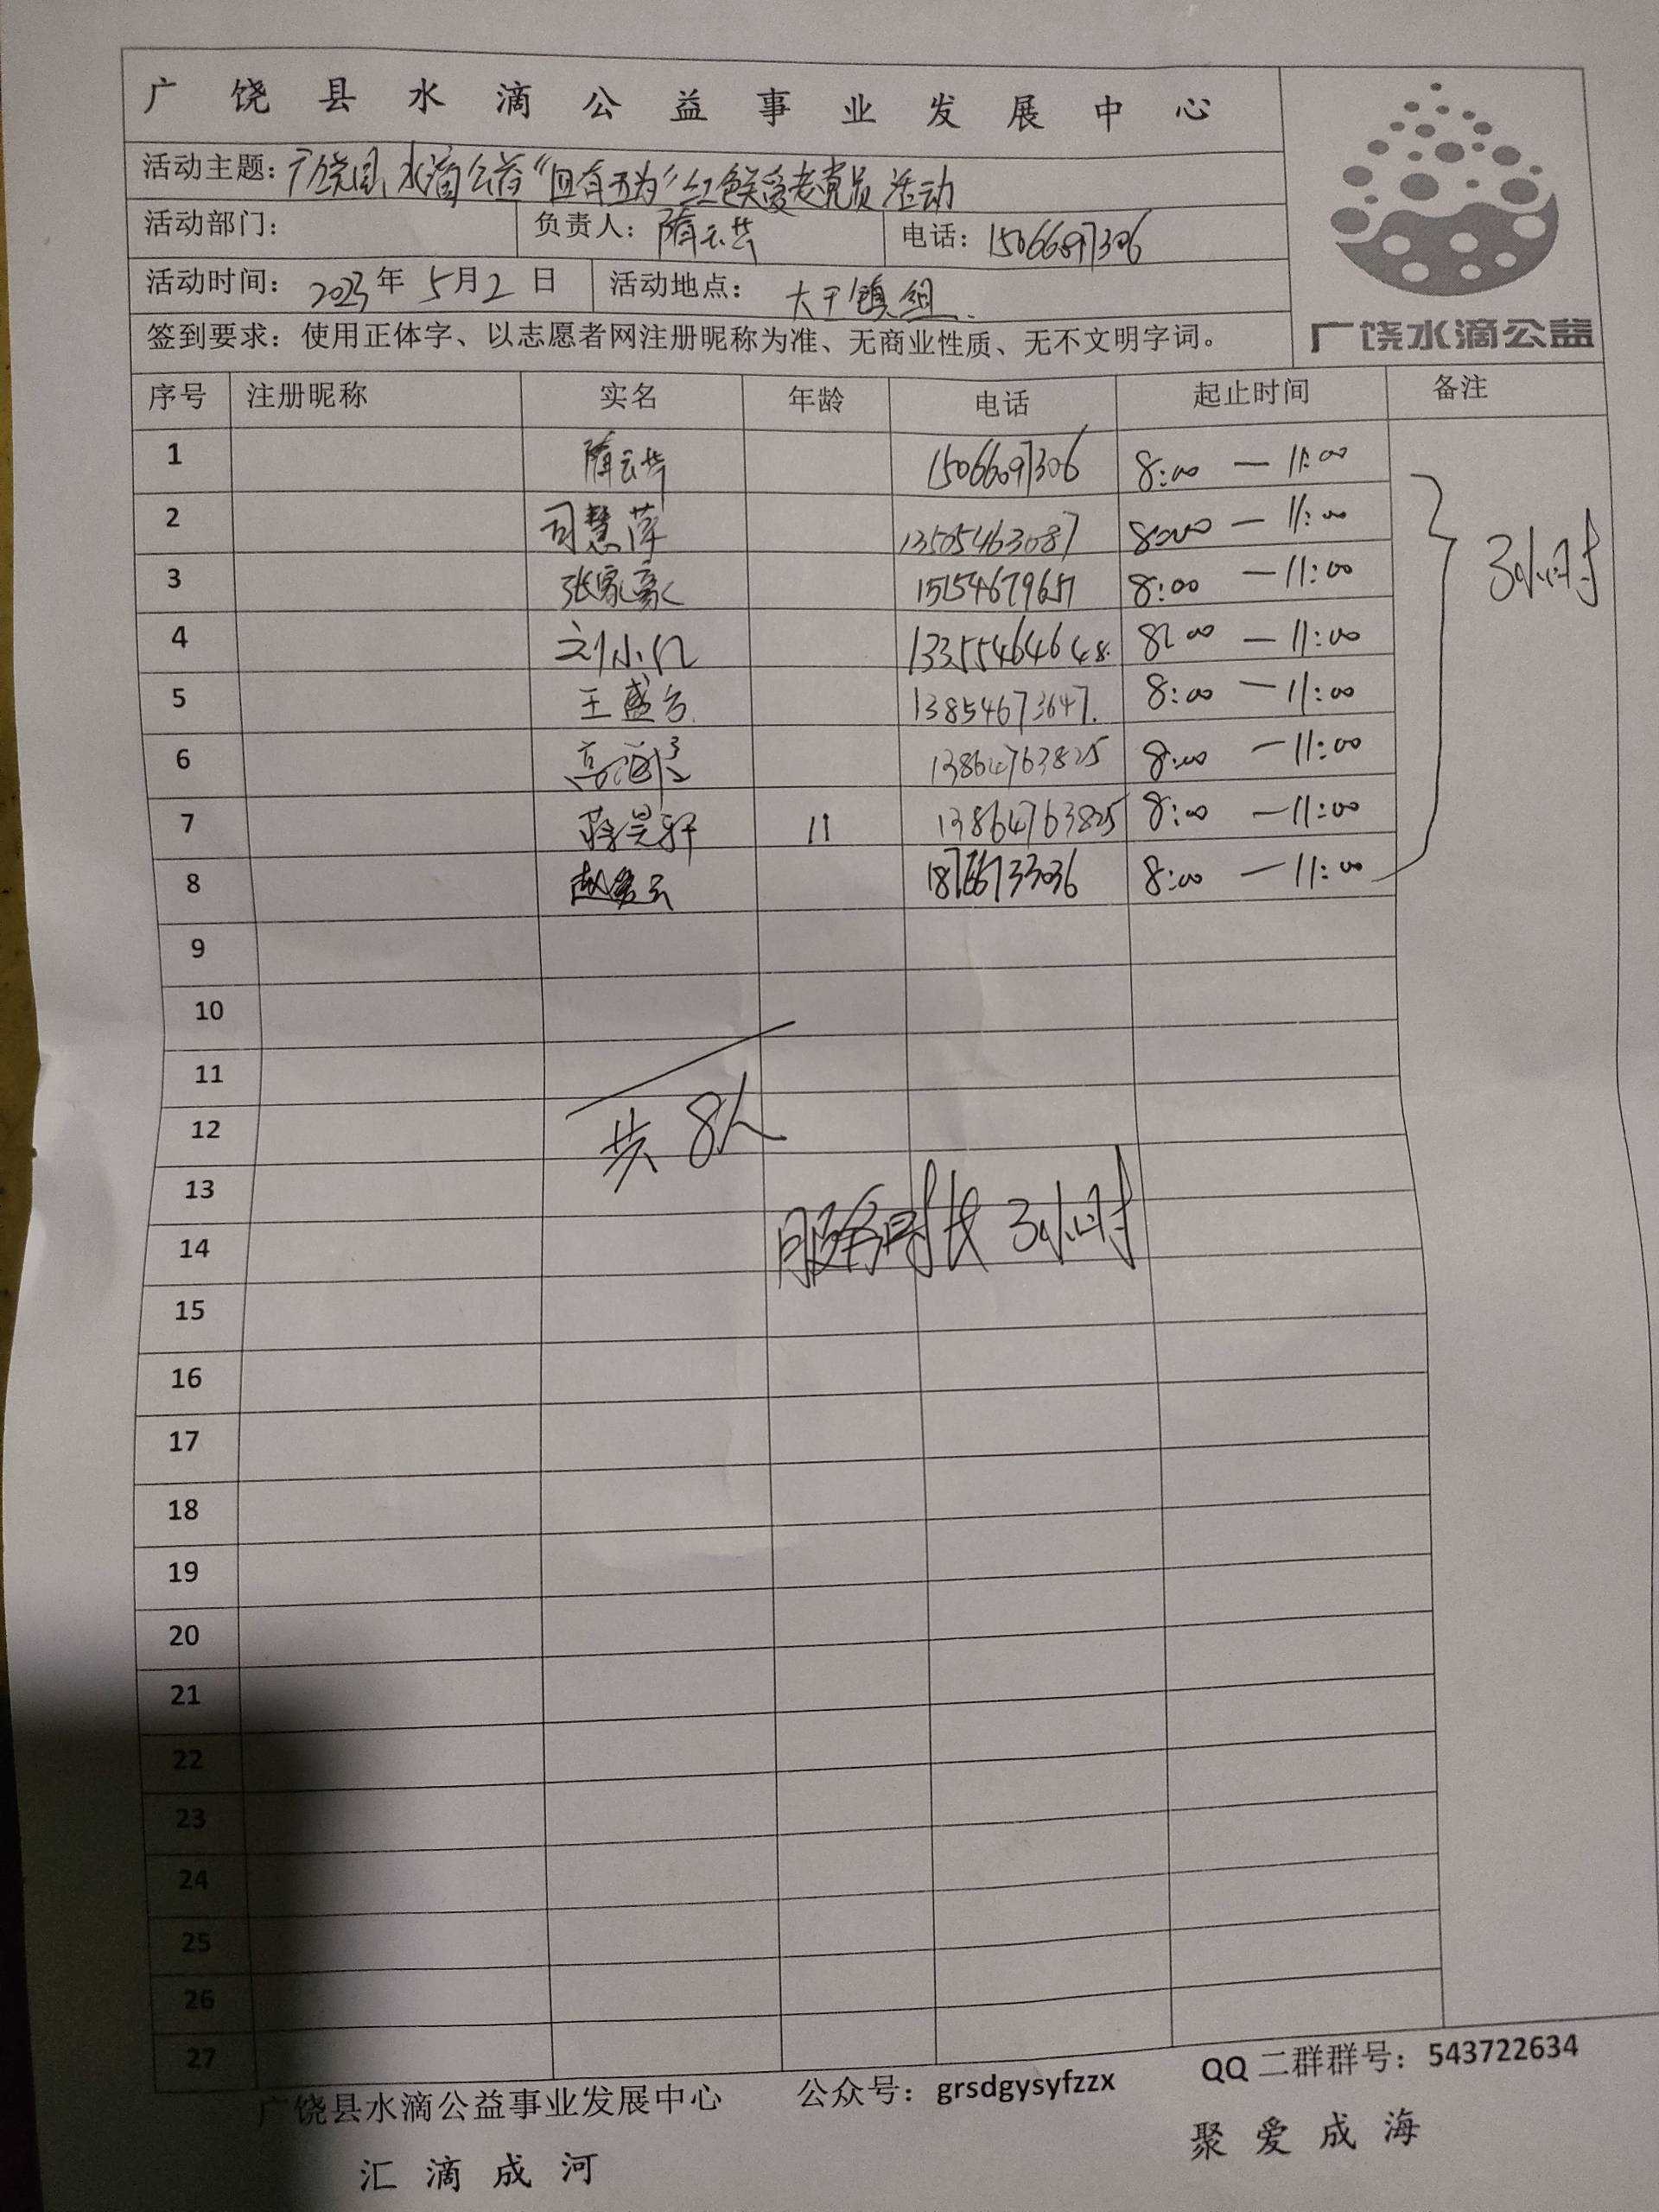 广饶县水滴公益事业发展中心
活动主题：广饶县水滴公益“但有所为”红色关爱老党员活动
活动部门： 负责人：隋云芸 电话：15066097306
活动时间：2023年5月2日 活动地点：大王镇
签到要求：使用正体字、以志愿者网注册昵称为准、无商业性质、无不文明字词。
广饶水滴公益
序号 注册昵称 实名 年龄 电话 起止时间 备注
1 隋云芸 15066097306 8:00 — 11:00
2 司慧萍 13505463087 8:00 — 11:00
3 张家豪 8:00 — 11:00
4 刘小 13355464648 8:00 — 11:00
5 王盛 13854673647 8:00 — 11:00
6 高 13864763825 8:00 — 11:00
7 蒋昊轩 11 13864763825 8:00 — 11:00
8 赵 18766733036 8:00 — 11:00
3小时
9
10
11
12
共8人
13
服务时长3小时
14
15
16
17
18
19
20
21
22
23
24
25
26
27
广饶县水滴公益事业发展中心 公众号：grsdgysyfzzx QQ二群群号：543722634
汇滴成河 聚爱成海